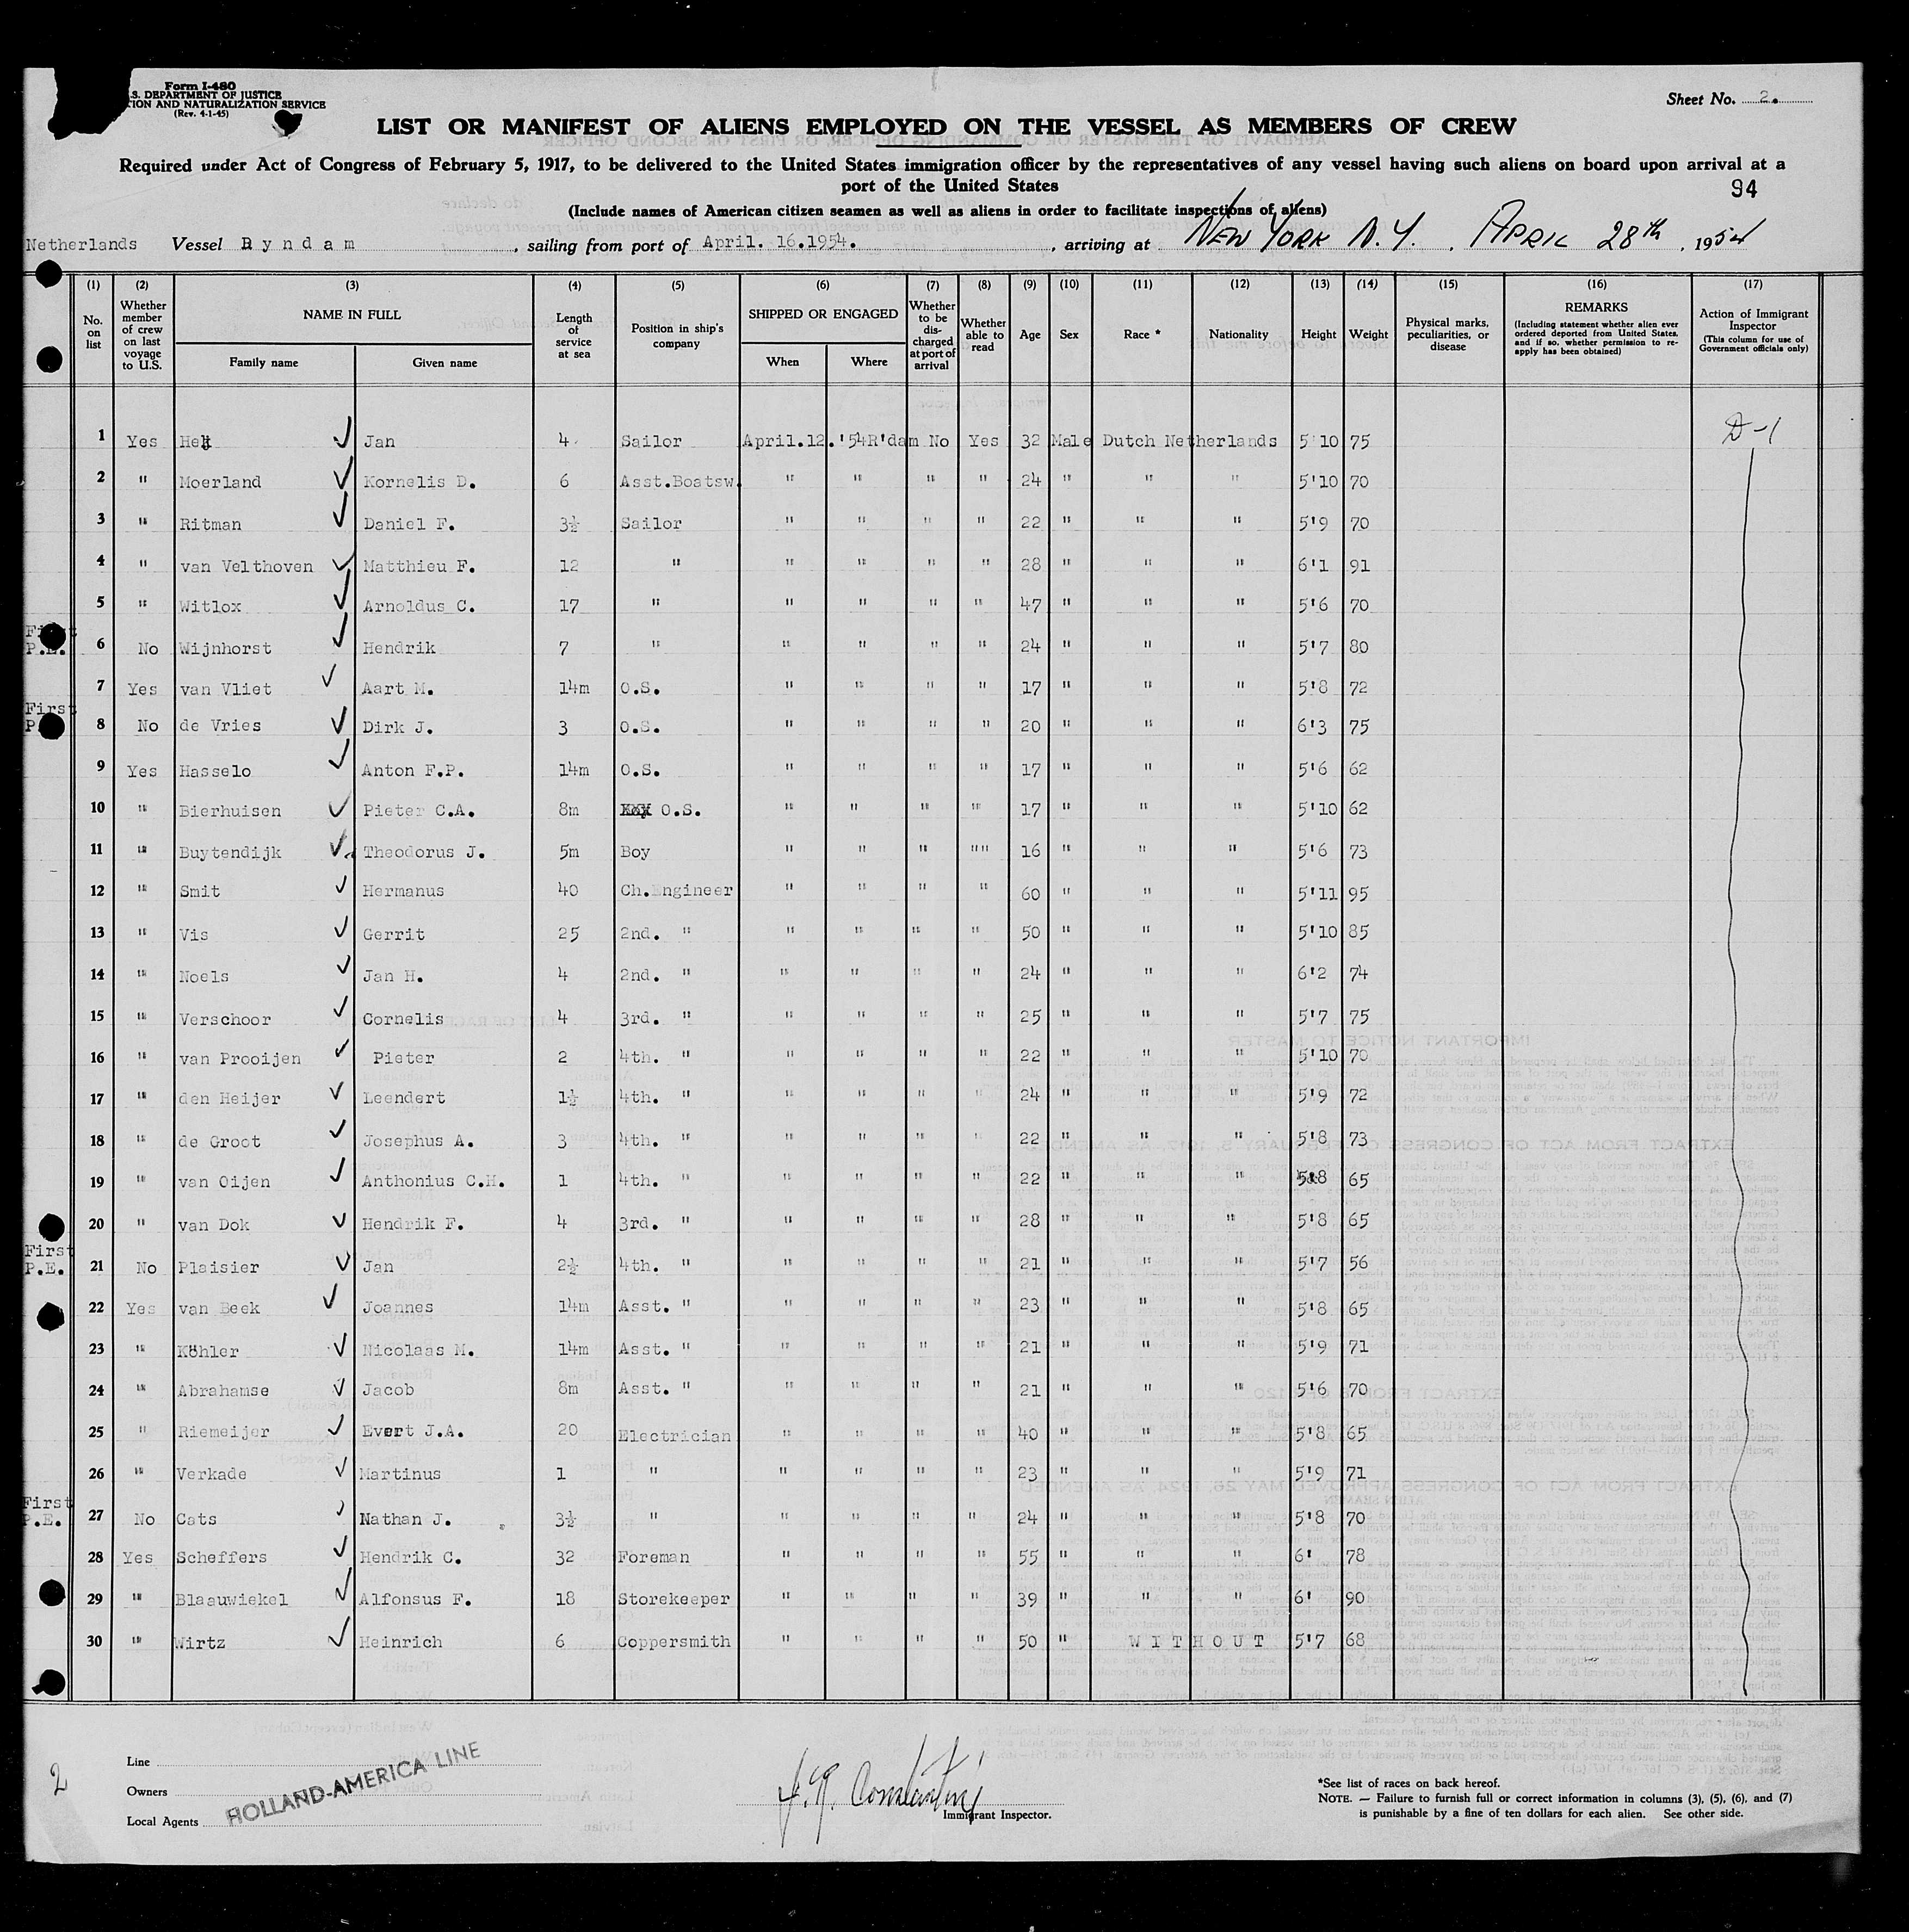 Form I-480
.S. DEPARTMENT OF JUSTICE
TION AND NATURALIZATION SERVICE
(Rev. 4-1-45)
Sheet No. 2.
LIST OR MANIFEST OF ALIENS EMPLOYED ON THE VESSEL AS MEMBERS OF CREW
Required under Act of Congress of February 5, 1917, to be delivered to the United States immigration officer by the representatives of any vessel having such aliens on board upon arrival at a
port of the United States
94
(Include names of American citizen seamen as well as aliens in order to facilitate inspections of aliens)
Netherlands Vessel Ryndam, sailing from port of April. 16.1954., arriving at NEW YORK N.Y. . APRIL 28th, 1954
(1) (2) (3) (4) (5) (6) (7) (8) (9) (10) (11) (12) (13) (14) (15) (16) (17)
No. on list
Whether member of crew on last voyage to U.S.
NAME IN FULL
Family name
Given name
Length of service at sea
Position in ship's company
SHIPPED OR ENGAGED
When
Where
Whether to be dis-charged at port of arrival
Whether able to read
Age
Sex
Race *
Nationality
Height
Weight
Physical marks, peculiarities, or disease
REMARKS
(Including statement whether alien ever ordered deported from United States, and if so, whether permission to re-apply has been obtained)
Action of Immigrant Inspector
(This column for use of Government officials only)
1 Yes Jan 4 Sailor April.12.'54 R'dam No Yes 32 Male Dutch Netherlands 5'10 75 D-1
2 " Moerland Kornelis D. 6 Asst.Boatsw. " " " " 24 " " " 5'10 70
3 " Ritman Daniel F. 3½ Sailor " " " " 22 " " " 5'9 70
4 " van Velthoven Matthieu F. 12 " " " " " 28 " " " 6'1 91
5 " Witlox Arnoldus C. 17 " " " " " 47 " " " 5'6 70
First
P.E. 6 No Wijnhorst Hendrik 7 " " " " " 24 " " " 5'7 80
7 Yes van Vliet Aart M. 14m O.S. " " " " 17 " " " 5'8 72
First
P. 8 No de Vries Dirk J. 3 O.S. " " " " 20 " " " 6'3 75
9 Yes Hasselo Anton F.P. 14m O.S. " " " " 17 " " " 5'6 62
10 " Bierhuisen Pieter C.A. 8m O.S. " " " " 17 " " " 5'10 62
11 " Buytendijk Theodorus J. 5m Boy " " " "" 16 " " " 5'6 73
12 " Smit Hermanus 40 Ch.Engineer " " " " 60 " " " 5'11 95
13 " Vis Gerrit 25 2nd. " " " " " 50 " " " 5'10 85
14 " Noels Jan H. 4 2nd. " " " " " 24 " " " 6'2 74
15 " Verschoor Cornelis 4 3rd. " " " " " 25 " " " 5'7 75
16 " van Prooijen Pieter 2 4th. " " " " " 22 " " " 5'10 70
17 " den Heijer Leendert 1½ 4th. " " " " " 24 " " " 5'9 72
18 " de Groot Josephus A. 3 4th. " " " " " 22 " " " 5'8 73
19 " van Oijen Anthonius C.H. 1 4th. " " " " " 22 " " " 5'8 65
20 " van Dok Hendrik F. 4 3rd. " " " " " 28 " " " 5'8 65
First
P.E. 21 No Plaisier Jan 2½ 4th. " " " " " 21 " " " 5'7 56
22 Yes van Beek Joannes 14m Asst. " " " " " 23 " " " 5'8 65
23 " Köhler Nicolaas M. 14m Asst. " " " " " 21 " " " 5'9 71
24 " Abrahamse Jacob 8m Asst. " " " " " 21 " " " 5'6 70
25 " Riemeijer Evert J.A. 20 Electrician " " " " 40 " " " 5'8 65
26 " Verkade Martinus 1 " " " " " 23 " " " 5'9 71
First
P.E. 27 No Cats Nathan J. 3½ " " " " " 24 " " " 5'8 70
28 Yes Scheffers Hendrik C. 32 Foreman " " " " 55 " " " 6' 78
29 " Blaauwiekel Alfonsus F. 18 Storekeeper " " " " 39 " " " 6' 90
30 " Wirtz Heinrich 6 Coppersmith " " " " 50 " WITHOUT 5'7 68
2
Line
Owners
Local Agents
HOLLAND-AMERICA LINE
Immigrant Inspector.
*See list of races on back hereof.
NOTE. — Failure to furnish full or correct information in columns (3), (5), (6), and (7)
is punishable by a fine of ten dollars for each alien. See other side.